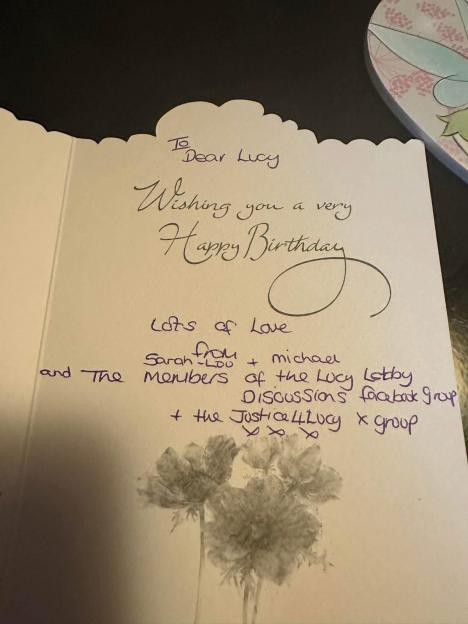 To
Dear Lucy
Wishing you a very
Happy Birthday
Lots of Love
from
Sarah-Lou + michael
and The Members of the Lucy Letby
Discussions facebook Group
+ the Justice4Lucy x group
x x x